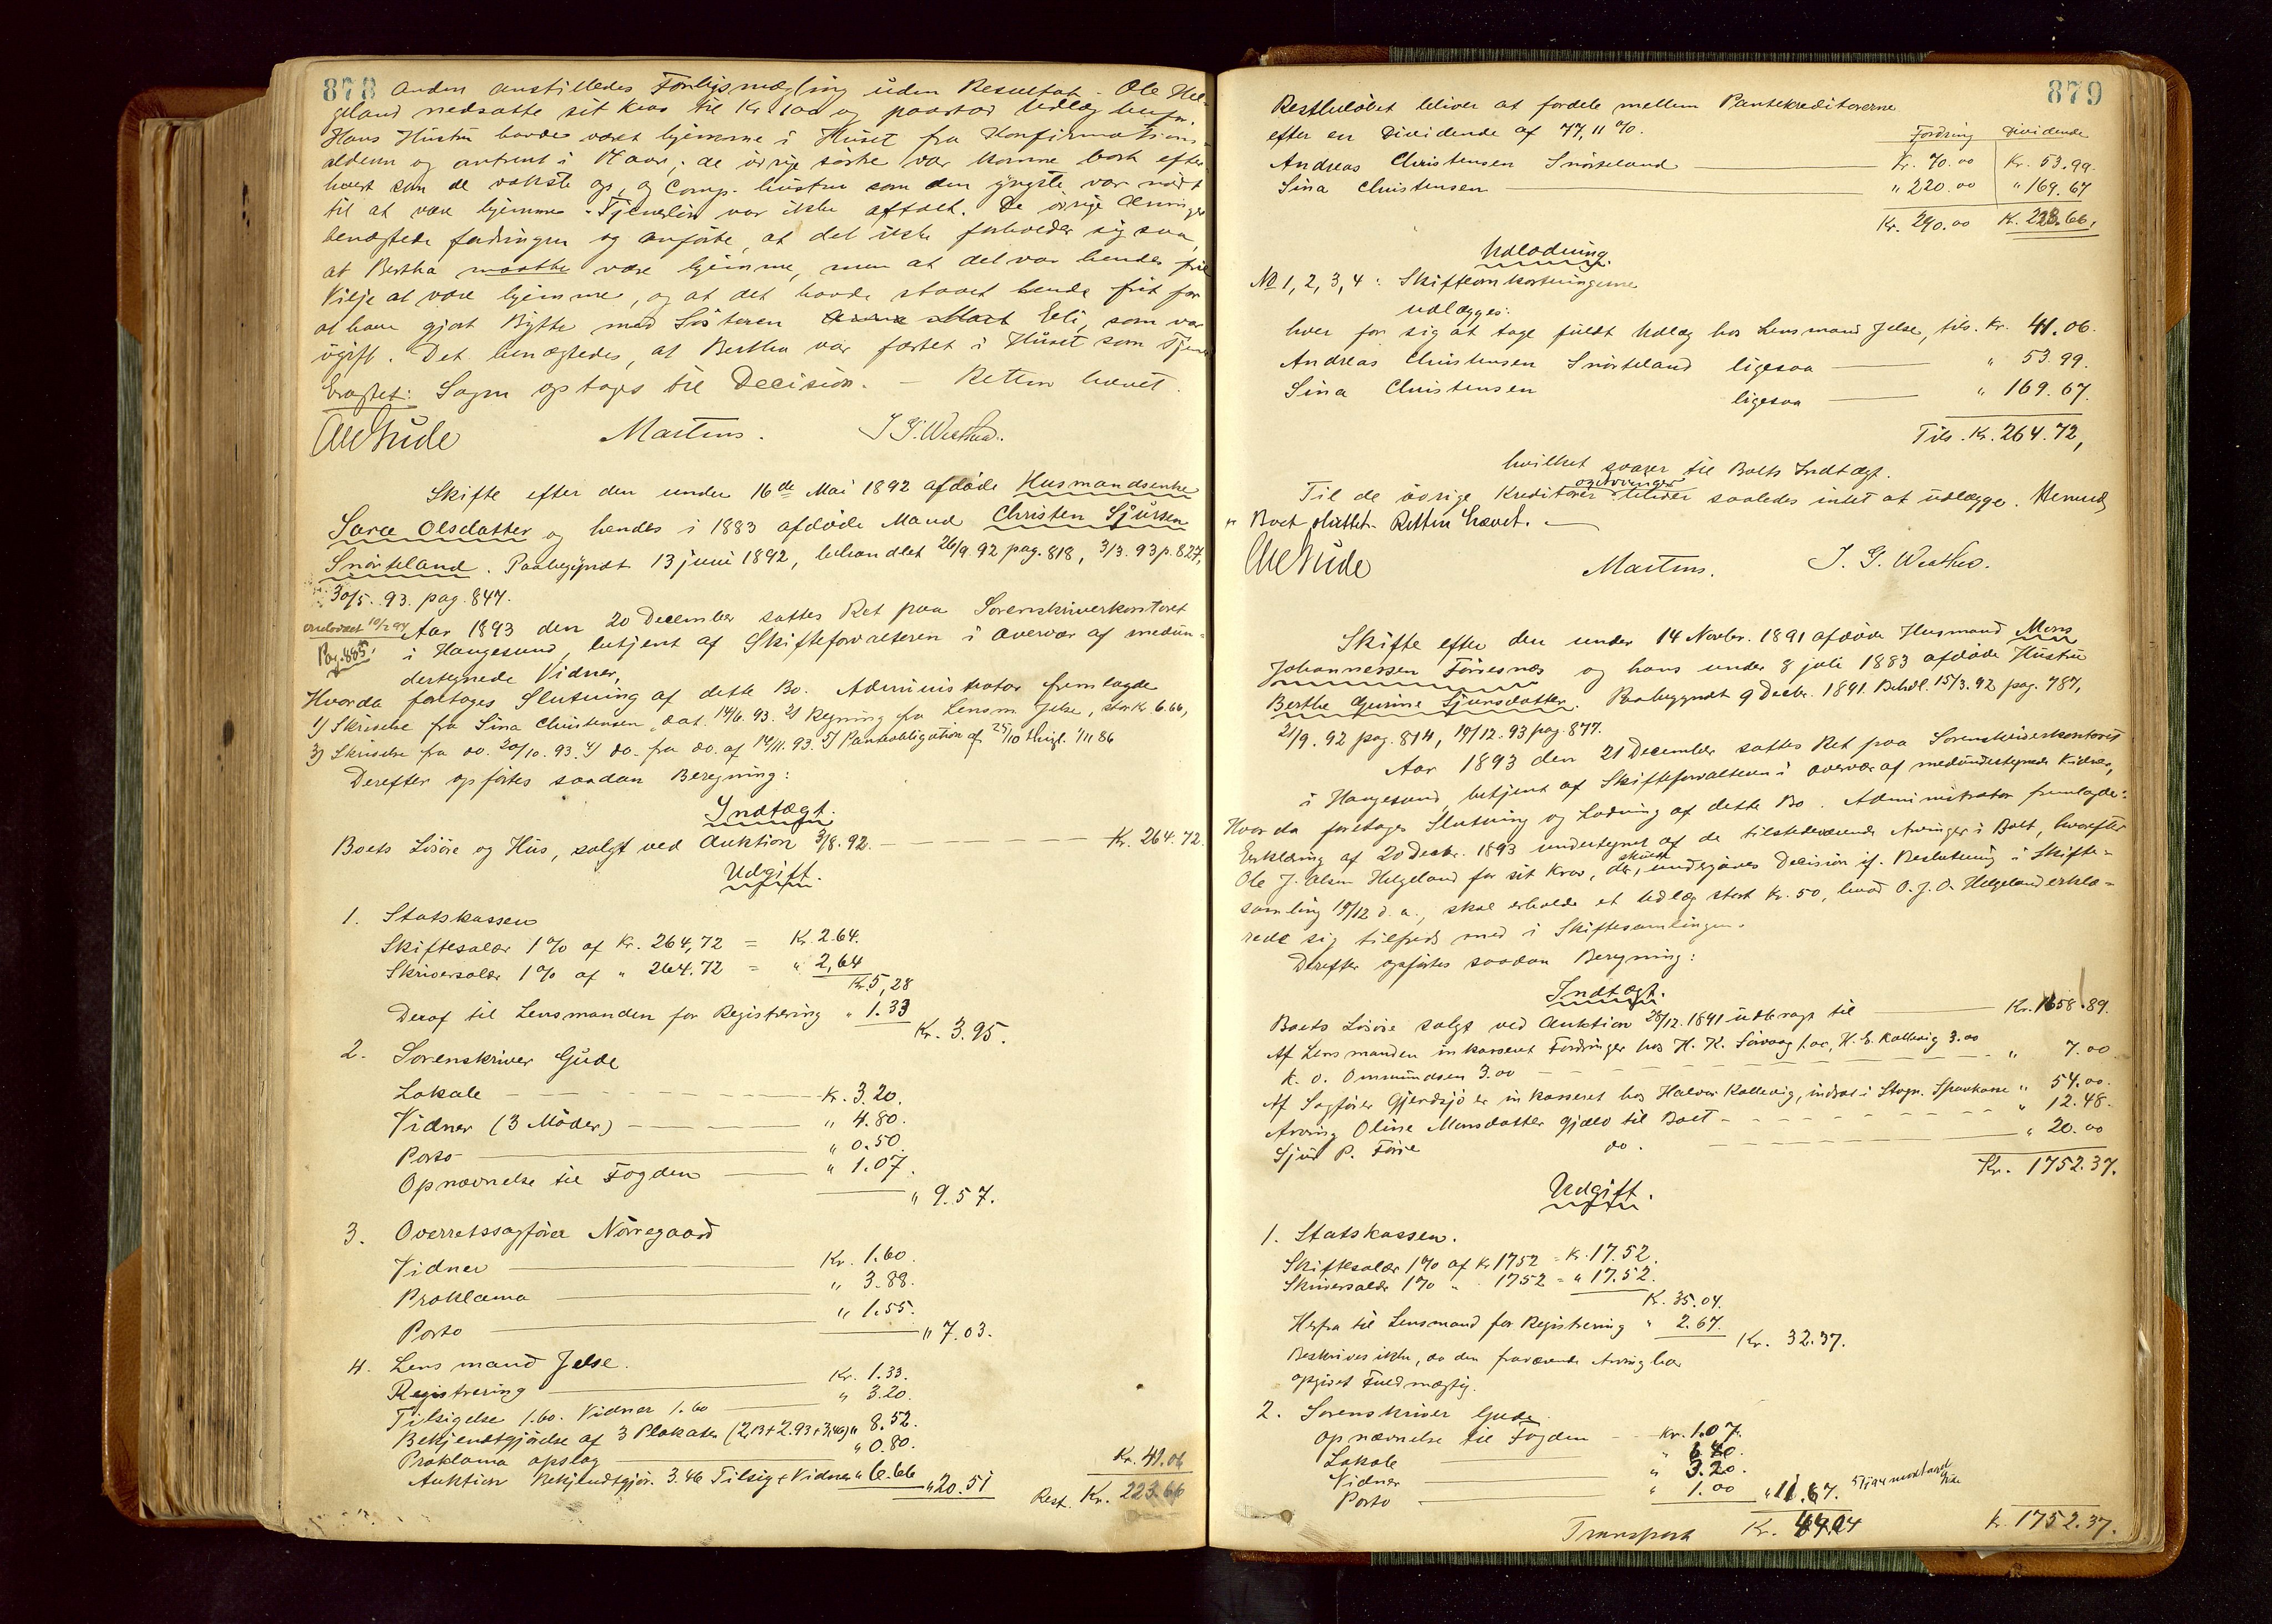 878
anden anstilledes Forligsmægling uden Resultat. Ole Hel-
geland nedsatte sit krav til Kr 100 og paastod Udlæg herfor.
Hans Hustru havde været hjemme i Huset fra Konfirmations-
alderen og omtrent i 14 aar; de øvrige søstre var komne bort efter-
hvert som de vokste op, og Comp. hustru som den yngste var nødt
til at være hjemme. Tjenerløn var ikke aftalt. De øvrige Arvinger
benægtede fordringen og anførte, at det ikke forholder sig saa,
at Bertha maatte være hjemme, men at det var hendes frie
Vilje at være hjemme, og at det havde staaet hende frit for
at have gjort Bytte med Søsteren Eli, som var
ugift. Det benægtedes, at Bertha var fæstet i Huset som Tjener
Eragtet: Sagen optages til Decision. — Retten hævet.
Gude Martens. J. G. Westheo.
Skifte efter den under 16de Mai 1892 afdøde Husmandsenke
Sara Olsdatter og hendes i 1883 afdøde Mand Christen Sjursen
Snørteland. Paabegyndt 13 juni 1892, behandlet 26/9.92 pag. 818, 3/3.93 p. 827,
30/5.93. pag. 847.
Pag. 885.
Aar 1893 den 20 December sattes Ret paa Sorenskriverkontoret
i Haugesund, betjent af Skifteforvalteren i overvær af medun-
dertegnede Vidner,
Hvorda foretoges Slutning af dette Bo. Administrator fremlagde
1) Skrivelse fra Sina Christensen, dat. 14/6.93. 2) Regning fra Lensm. Jelse, stor kr 6.66,
3) Skrivelse fra do. 20/10.93. 4) do. fra do. af 14/11.93. 5) Panteobligation af 25/10 thingl. 1/11 86
Derefter opførtes saadan Beregning:
Indtægt.
Boets Løsøre og Hus, solgt ved Auktion 3/8.92. — Kr. 264.72.
Udgift.
1. Statskassen
Skiftesalær 1% af Kr. 264,72 = Kr. 2.64.
Skriversalær 1% af " 264.72 = " 2,64
Kr. 5,28
Deraf til Lensmanden for Registrering " 1.33
Kr. 3.95.
2. Sorenskriver Gude
Lokale — Kr. 3.20.
Vidner (3 Møder) — " 4.80.
Porto — " 0.50.
Opnævnelse til Fogden — " 1.07.
" 9.57.
3. Overretssagfører Nørregaard
Vidner — Kr. 1.60.
Proklama — " 3.88.
Porto — " 1.55.
" 7.03.
4. Lensmand Jelse.
Registrering — Kr. 1.33.
Tilsigelse 1.60. Vidner 1.60 — " 3.20.
Bekjendtgjørelse af 3 Plakater (2,13+2.93+3,46) " 8.52.
Proklama opslag — " 0.80.
Auktion Bekjendtgjør. 3.46 Tilsig. & Vidner " 6.66 " 20.51
Kr. 41.06
Rest. Kr. 223.66
879
Restbeløbet bliver at fordele mellem Pantekreditorerne
efter en Dividende af 77,11%.
Fordring Dividende
Andreas Christensen Snørteland — Kr. 70.00 Kr. 53.99.
Sina Christensen — " 220.00 " 169.67
Kr. 290.00 Kr. 223.66,
Udlodning.
No 1, 2, 3, 4: Skifteomkostningerne
udlægges:
hver for sig at tage fuldt Udlæg hos Lensmand Jelse, tils. Kr. 41.06.
Andreas Christensen Snørteland ligesaa — " 53.99.
Sina Christensen ligesaa — " 169.67.
Tils. Kr. 264.72,
hvilket svarer til Boets Indtægt.
og Arvinger
Til de øvrige Kreditorer bliver saaledes intet at udlægge. Hermed
er Boet sluttet. Retten hævet. —
Gude Martens. J. G. Westheo.
Skifte efter den under 14 Novbr. 1891 afdøde Husmand Mons
Johannessen Førresnæs og hans under 8 juli 1883 afdøde Hustru
Berthe Gurine Sjursdatter. Paabegyndt 9 Decbr. 1891. Behdl. 15/3.92 pag. 787,
21/9.92 pag. 814, 19/12.93 pag. 877.
Aar 1893 den 21 December sattes Ret paa Sorenskriverkontoret
i Haugesund, betjent af Skifteforvalteren i overvær af medundertegnede Vidner,
Hvorda foretoges Slutning og Lodning af dette Bo. Administrator fremlagde:
Erklæring af 20 Decbr. 1893 undertegnet af de tilstedeværende Arvinger i Boet, hvorefter
Ole J. Olsen Helgeland for sit Krav, der, undergives Decision if. Beslutning i Skifte-
samling 19/12 d. a., skal erholde et Udlæg stort Kr. 50, hvad O. J. O. Helgeland erklæ-
rede sig tilfreds med i Skiftesamlingen.
Derefter opførtes saadan Beregning:
Indtægt.
Boets Løsøre solgt ved Auktion 28/12.1891 udbragt til — Kr. 1658.89.
Af Lensmanden inkasseret Fordringer hos H. K. Sørvaag 1.00, H. E. Kallevig 3.00
K. O. Ommundsen 3.00 — " 7.00
Af Sagfører Gjerdsjø er inkasseret hos Halvor Kallevig, indsat i Skopr. Sparkasse " 54.00.
Arving Oline Monsdatter gjæld til Boet — " 12.48.
Sjur P. Førre do. — " 20.00
Kr. 1752.37.
Udgift.
1. Statskassen.
Skiftesalær 1% af Kr 1752 = Kr. 17.52.
Skriversalær 1% " 1752 = " 17.52.
Kr. 35.04.
Herfra til Lensmand for Registrering " 2.67.
Kr. 32.37.
Beskrives ikke, da den fraværende Arving har
opgivet Fuldmægtig.
2. Sorenskriver Gude.
Opnævnelse til Fogden — Kr. 1.07.
Lokale — " 6.40.
Vidner — " 3.20.
Porto — " 1.00 " 11.67.
Transport Kr. 44.04 Kr. 1752.37.